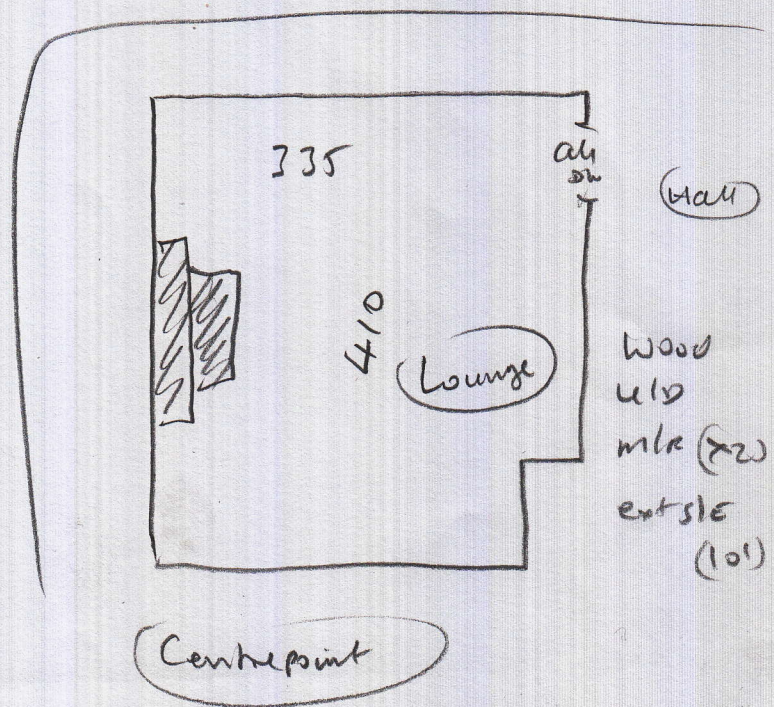 335
ali
Hall
410
Lounge
Wood
u/D
m/R (x2)
ext s/E
(101)
Centrepoint